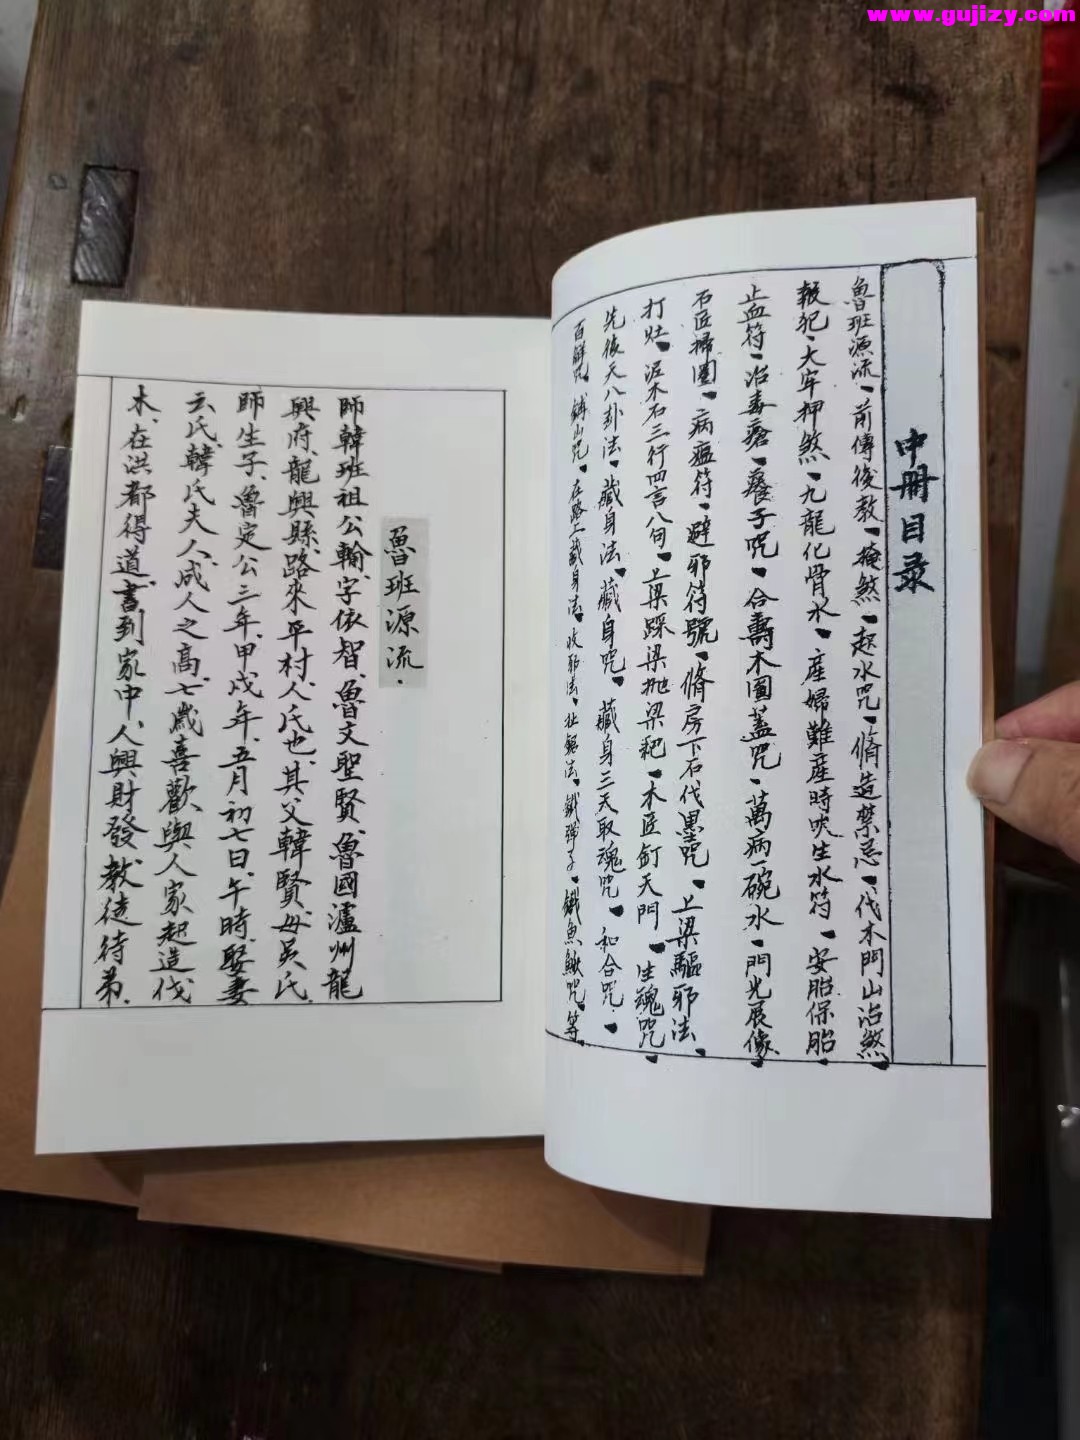 www.gujizy.com
中冊目录
魯班源流、前傳後教、掩煞、起水咒、脩造禁忌、伐木門山沾煞、
報犯、大牢押煞、九龍化骨水、産婦難産時吠生水符、安胎保胎、
止血符、治毒瘡、癢子咒、合壽木圍蓋咒、萬病一碗水、門光展像、
石匠掃圍、病瘟符、避邪符號、脩房下石伐墨咒、上梁驅邪法、
打灶、泥木石三行四言八句、上梁踩梁抛梁粑、木匠釘天門、生魂咒、
先後天八卦法、藏身法、藏身咒、藏身三天取魂咒、和合咒、
百解咒、鋪山咒、在路上藏身法、收邪法、扯鋸法、鐵彈子、鐵魚鰍咒、等、
魯班源流.
師韓班祖公輸、字依智、魯文聖賢、魯國瀘州龍
興府、龍興縣、路來平村、人氏也、其父韓賢、母吴氏、
師生子、魯定公三年、甲戌年、五月初七日、午時、娶妻
云氏、韓氏夫人、成人之高、七歲喜歡、與人家起造伐
木、在洪都得道、書到家中、人興財發、教徒待弟、